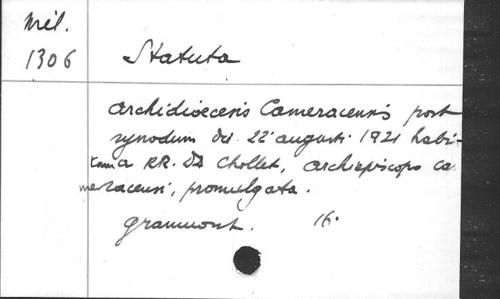 Mél.
1306
Statuta
archidioecesis Cameracensis post
synodum die 22 augusti 1921 habi-
tam a RR. DD Chollet, archiepiscopo ca
meracensi, promulgata.
Grammont. 16°